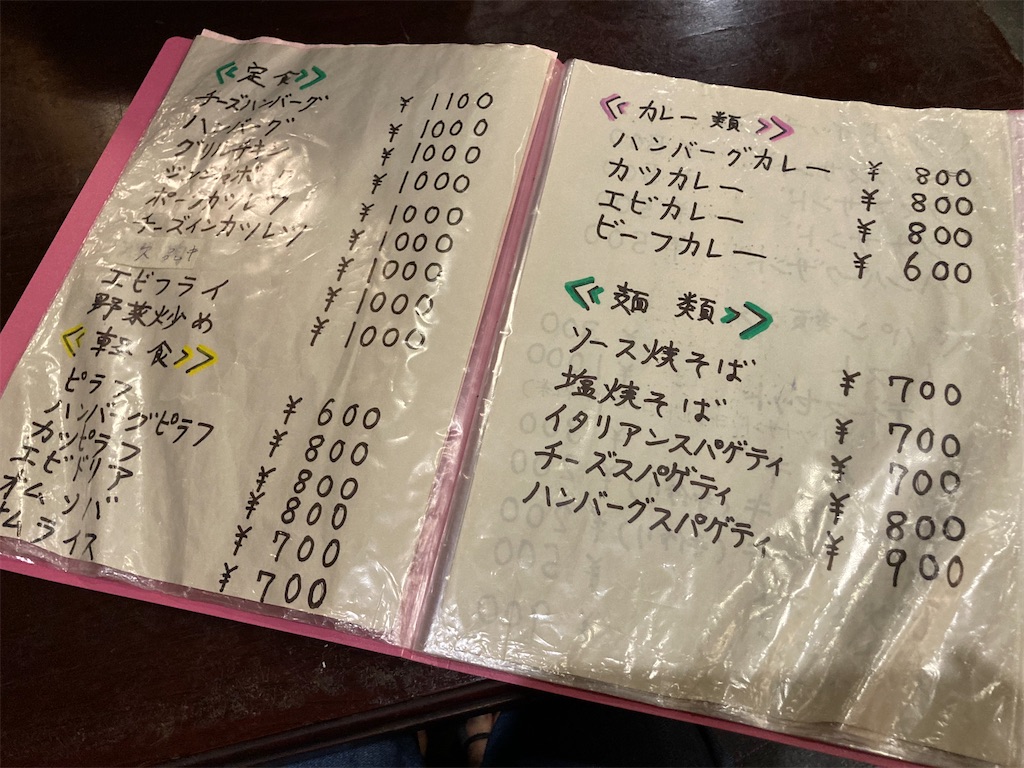 ≪定食≫
チーズハンバーグ ¥1100
ハンバーグ ¥1000
グリルチキン ¥1000
ジンジャポーク ¥1000
ポークカツレツ ¥1000
チーズインカツレツ ¥1000
¥1000
エビフライ ¥1000
野菜炒め ¥1000
≪軽食≫
ピラフ ¥600
ハンバーグピラフ ¥800
カツピラフ ¥800
エビドリア ¥800
オムソバ ¥700
オムライス ¥700
≪カレー類≫
ハンバーグカレー ¥800
カツカレー ¥800
エビカレー ¥800
ビーフカレー ¥600
≪麺類≫
ソース焼そば ¥700
塩焼そば ¥700
イタリアンスパゲティ ¥700
チーズスパゲティ ¥800
ハンバーグスパゲティ ¥900